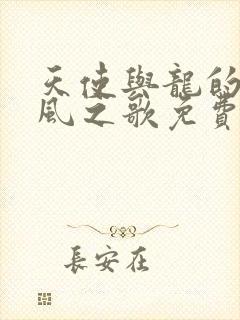 天使與龍的
風之歌免費
長安在